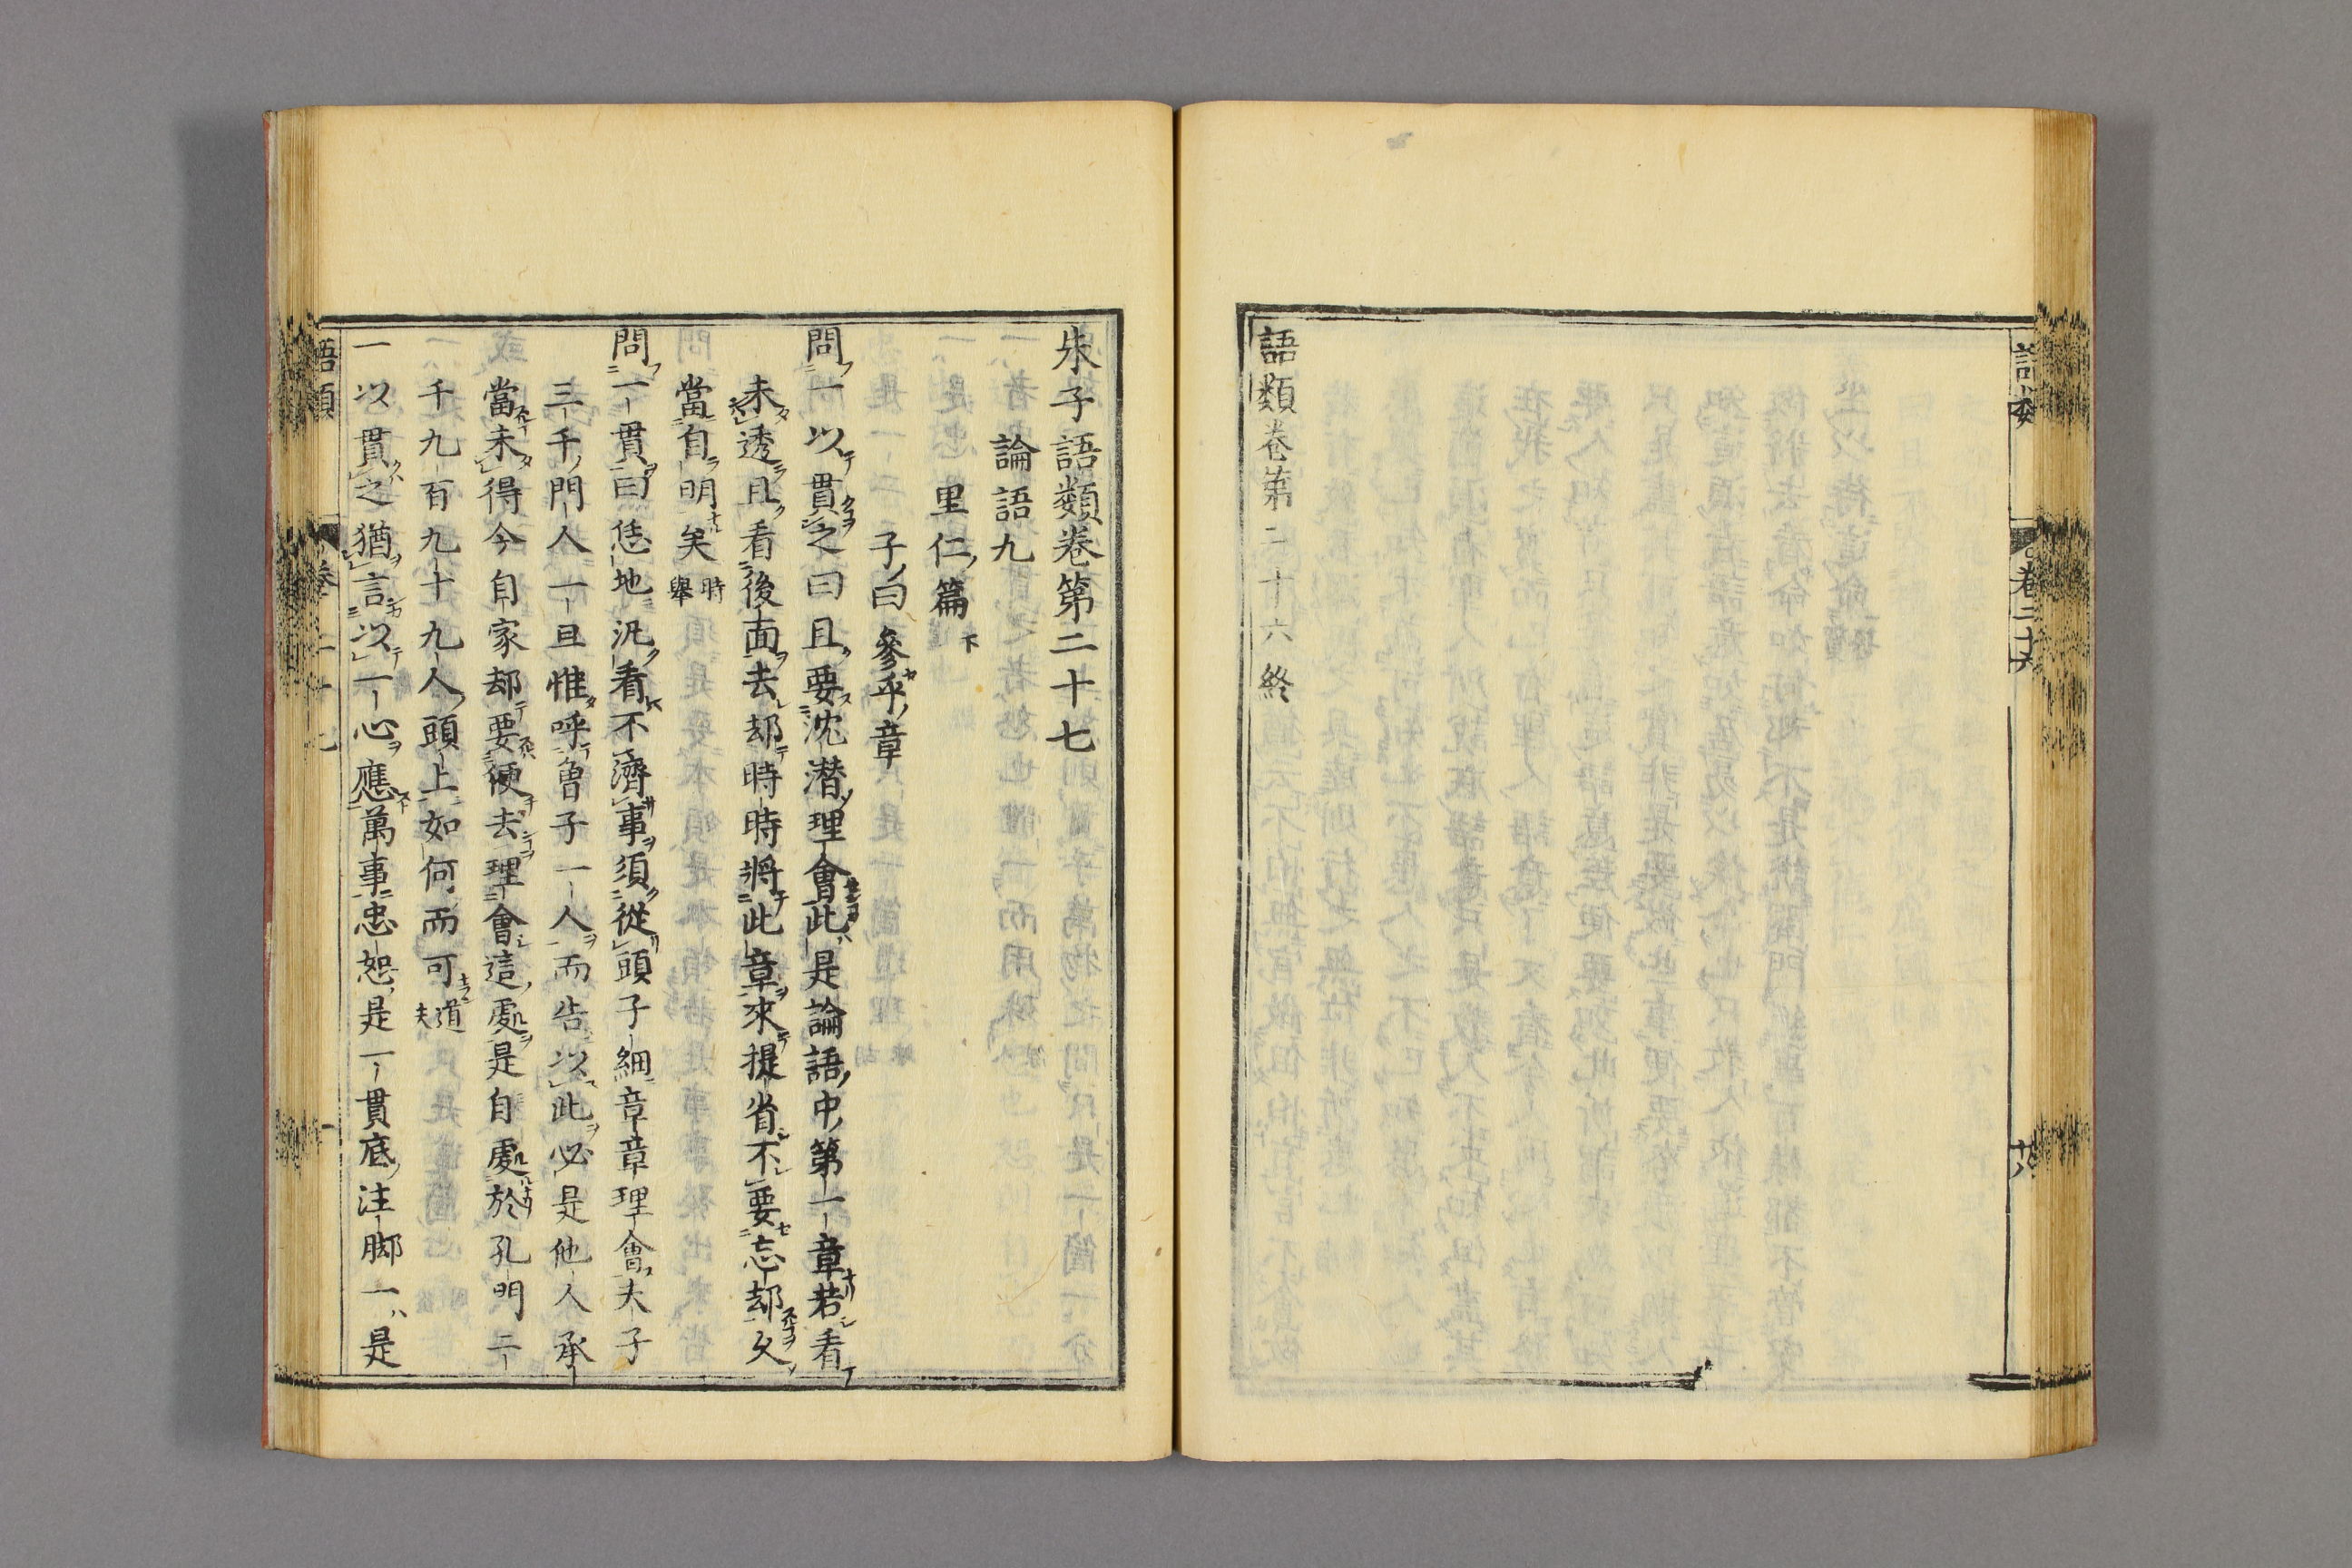 語類卷第二十六終
朱子語類卷第二十七
論語九
里仁篇下
子曰參乎章
問一以貫之曰且要沈潛理會此是論語中第一章若看
未透且看後面去却時時將此章來提省不要忘却久
當自明矣時舉
問一貫曰恁地汎看不濟事須從頭子細章章理會夫子
三千門人一旦惟呼曾子一人而告以此必是他人承
當未得今自家却要便去理會這處是自處於孔門二
千九百九十九人頭上如何而可道夫
一以貫之猶言以一心應萬事忠恕是一貫底注脚一是